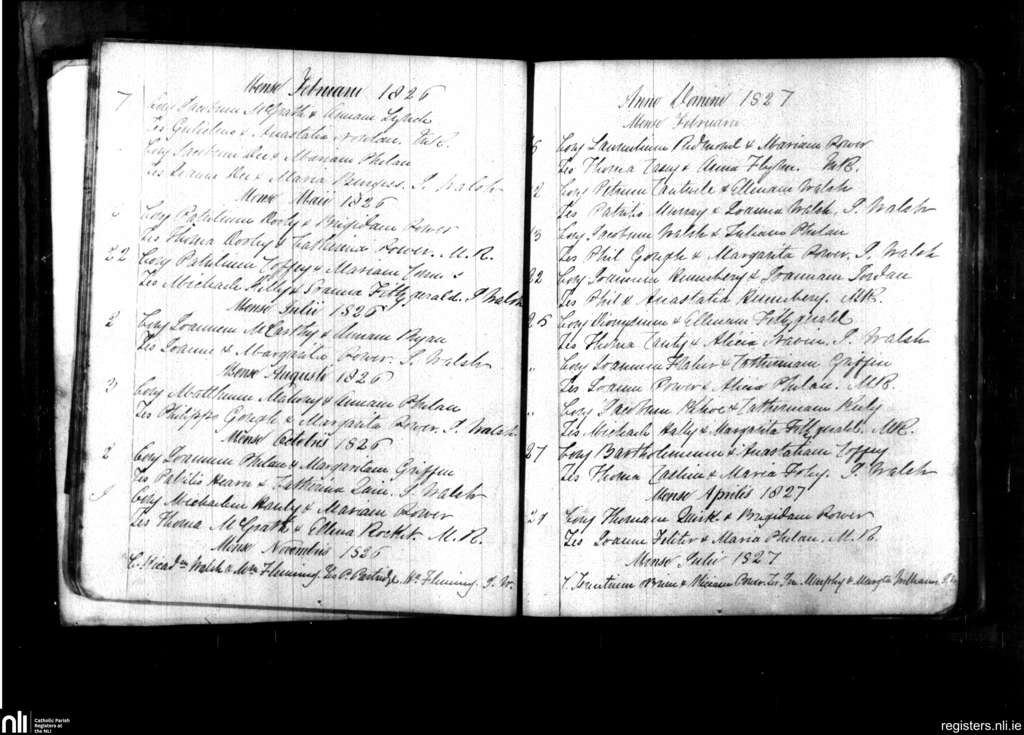 Mense Februarii 1826
7 Conj Jacobum McGrath & Annam Lynch
Tes Gulielmo & Anastatia Nowlan
Conj Jacobum Kee & Mariam Phelan
Tes Joanne Kee & Maria Burgess. P. Walsh
Mense Maii 1826
Conj Patritium Dorly & Brigidam Power
Tes Thoma Dorley & Catherina Power. M.R.
22 Conj Patritium Coffey & Mariam
Tes Michaele Killy & Joanna Fittzgerald. P. Walsh
Mense Julii 1826
2 Conj Joannem McCarthy & Annam Ryan
Tes Joanne & Margarita Power. P. Walsh
Mense Augusti 1826
3 Conj Matthum Mahony & Annam Phelan
Tes Philippo Gough & Margarita Power. P. Walsh
Mense Octobris 1826
2 Conj Joannem Phelan & Margaritam Griffin
Tes Patritio Hearn & Catherina Quin. P. Walsh
9 Conj Michaelem Hanly & Mariam Power
Tes Thoma McGrath & Ellena Rockett M.R.
Mense Novembris 1826
C. Walsh & Fleming. Tes P. Partridge. Wm Fleming. P. W.
Anno Domini 1827
Mense Februarii
6 Conj Laurentium Redmond & Mariam Power
Tes Thoma Casey & Anna Flynn. M.R.
2 Conj Petrum Cantwele & Ellenam Walsh
Tes Patritio Murray & Joanna Walsh, P. Walsh
13 Conj Jacobum Walsh & Julianam Phelan
Tes Phil Gough & Margarita Power. P. Walsh
22 Conj Joannem Henebery & Joannam Jordan
Tes Phil & Anastatia Henebery. M.R.
26 Conj Dionysium & Ellenam Fittzgerald
Tes Thoma Canty & Alicia P. Walsh
" Conj Joannem Flaher & Catherinam Griffin
Tes Joanne Power & Alicia Phelan. M.R.
" Conj Jacobum Kehoe & Catherinam Kiely
Tes Michaele Hally & Margarita Fittzgerald. M.R.
27 Conj Bartholomeum & Anastatiam Coffey
Tes Thoma Cashin & Maria Foley. P. Walsh
Mense Aprilis 1827
21 Conj Thomam Quirk & Brigidam Power
Tes Joanne & Maria Phelan. M.R.
Mense Julii 1827
C. Power Tes Murphy & Margta Williams